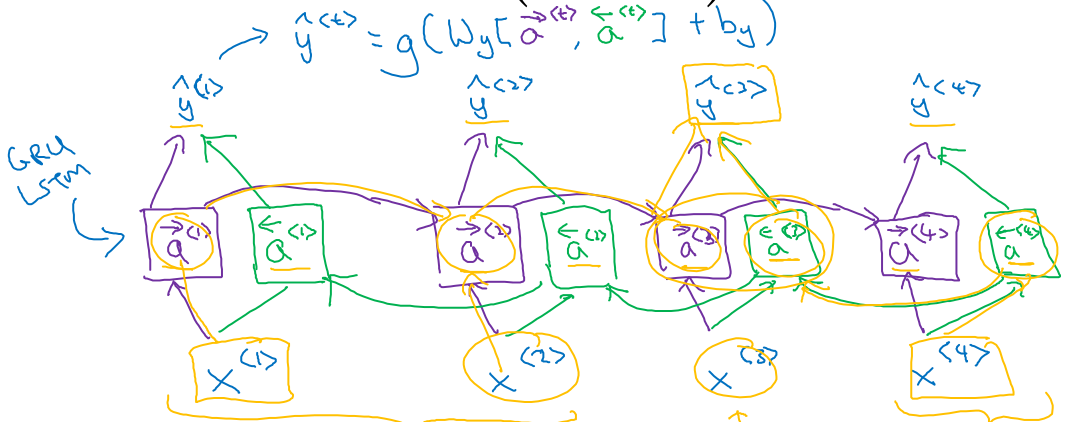 ŷ<t> = g(Wy[→a<t>, ←a<t>] + by)
ŷ<1> ŷ<2> ŷ<3> ŷ<4>
GRU
LSTM
→a<1> ←a<1> →a<2> ←a<2> →a<3> ←a<3> →a<4> ←a<4>
x<1> x<2> x<3> x<4>